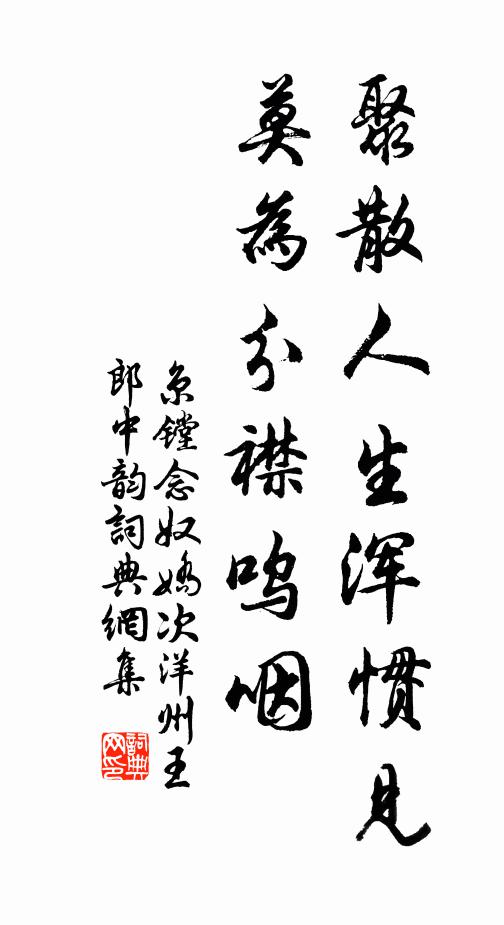 聚散人生浑惯见
莫為分襟呜咽
京镗念奴嬌次洋州王
郎中韵詞典網集
詞典
网印